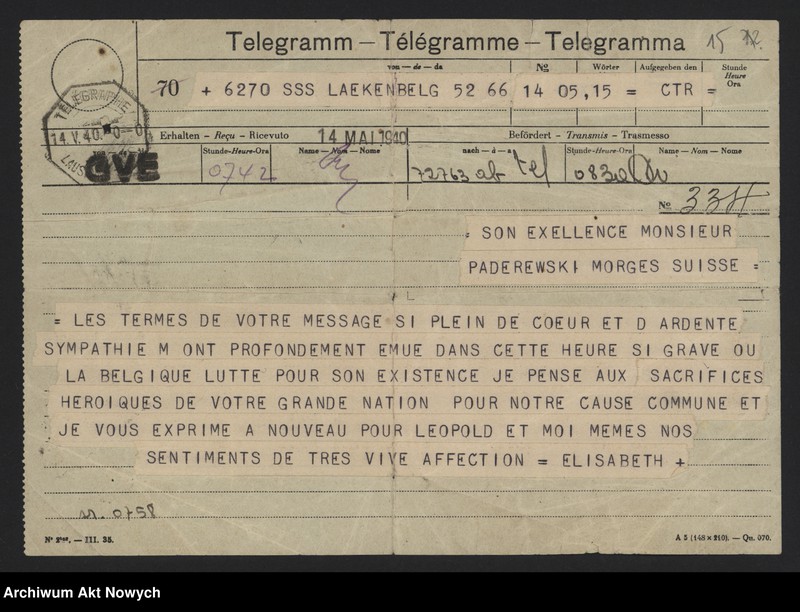 Telegramm – Télégramme – Telegramma
15
von – de – da
No
Wörter
Aufgegeben den
Stunde
Heure
Ora
70 + 6270 SSS LAEKENBELG 52 66 14 05,15 = CTR =
TELEGRAPHE
14.V.40.
LAUS
GVE
Erhalten – Reçu – Ricevuto
14 MAI 1940
Befördert – Transmis – Trasmesso
Stunde-Heure-Ora
Name – Nom – Nome
nach – à – a
Stunde-Heure-Ora
Name – Nom – Nome
0742
72763 ab tel
0830
No
= SON EXELLENCE MONSIEUR
PADEREWSKI MORGES SUISSE =
= LES TERMES DE VOTRE MESSAGE SI PLEIN DE COEUR ET D ARDENTE
SYMPATHIE M ONT PROFONDEMENT EMUE DANS CETTE HEURE SI GRAVE OU
LA BELGIQUE LUTTE POUR SON EXISTENCE JE PENSE AUX SACRIFICES
HEROIQUES DE VOTRE GRANDE NATION POUR NOTRE CAUSE COMMUNE ET
JE VOUS EXPRIME A NOUVEAU POUR LEOPOLD ET MOI MEMES NOS
SENTIMENTS DE TRES VIVE AFFECTION = ELISABETH +
0758
III. 35.
A 5 (148 × 210). – Qn. 070.
Archiwum Akt Nowych